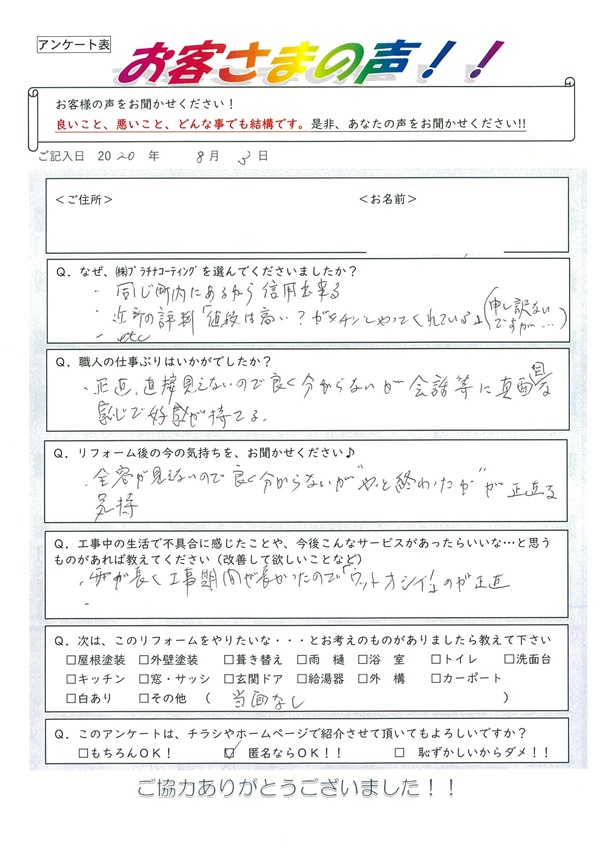 アンケート表
お客さまの声！！
お客様の声をお聞かせください！
良いこと、悪いこと、どんな事でも結構です。是非、あなたの声をお聞かせください!!
ご記入日 2020 年 8月 3日
＜ご住所＞ ＜お名前＞
Q．なぜ、㈱ﾌﾟﾗﾁﾅｺｰﾃｨﾝｸﾞを選んでくださいましたか？
・同じ町内にあるから信用出来る
・近所の評判「値段は高い？がキチンとやってくれている」（申し訳ないですが…）
・etc
Q．職人の仕事ぶりはいかがでしたか？
・正直、直接見えないので良く分からないが会話等に真面目な
感じで好感が持てる。
Q．リフォーム後の今の気持ちを、お聞かせください♪
・全容が見えないので良く分からないが"やっと終わったか"が正直な
気持
Q．工事中の生活で不具合に感じたことや、今後こんなサービスがあったらいいな…と思う
ものがあれば教えてください（改善して欲しいことなど）
・雨が長く工事期間が長かったので「ウットオシイ」のが正直
・
Q．次は、このリフォームをやりたいな・・・とお考えのものがありましたら教えて下さい
□屋根塗装 □外壁塗装 □葺き替え □雨 樋 □浴 室 □トイレ □洗面台
□キッチン □窓・サッシ □玄関ドア □給湯器 □外 構 □カーポート
□白あり □その他 （ 当面なし ）
Q．このアンケートは、チラシやホームページで紹介させて頂いてもよろしいですか？
□もちろんOK！ ☑ 匿名ならOK！！ □ 恥ずかしいからダメ！！
ご協力ありがとうございました！！